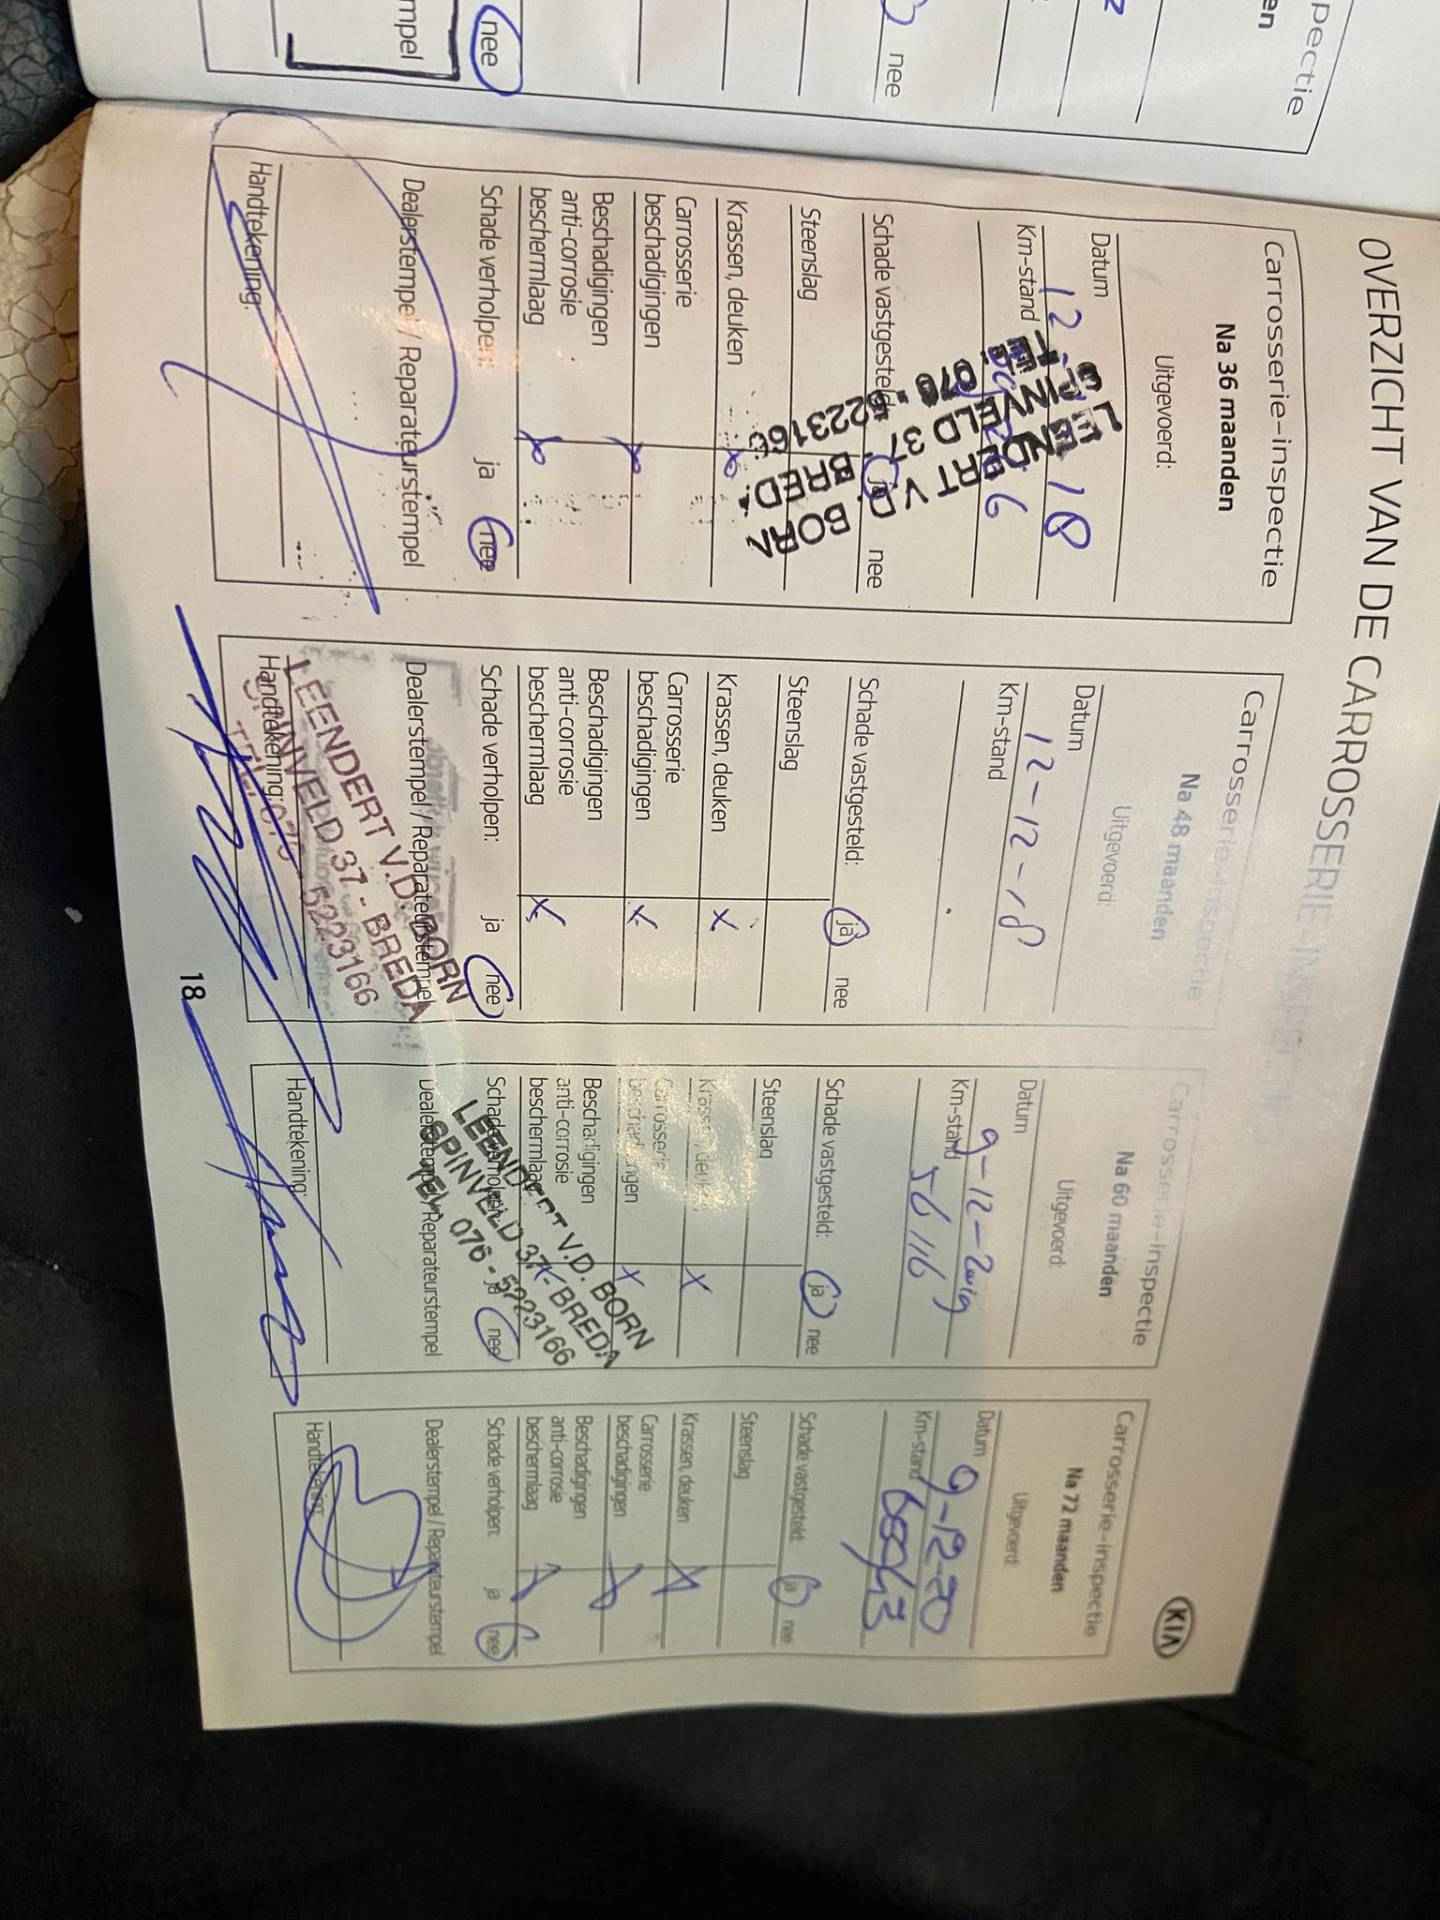 pectie
en
nee
nee
mpel
OVERZICHT VAN DE CARROSSERIE-INSPE
KIA
Carrosserie-inspectie
Na 36 maanden
Uitgevoerd:
Datum
12 18
Km-stand
6
Schade vastgesteld: ja nee
Steenslag
Krassen, deuken x
Carrosserie
beschadigingen x
Beschadigingen
anti-corrosie
beschermlaag x
Schade verholpen: ja nee
Dealerstempel / Reparateurstempel
LEENDERT V.D. BORN
SPINVELD 37 - BREDA
TEL. 076 - 5223166
Handtekening:
Carrosserie-inspectie
Na 48 maanden
Uitgevoerd:
Datum
12-12-18
Km-stand
Schade vastgesteld: ja nee
Steenslag
Krassen, deuken x
Carrosserie
beschadigingen x
Beschadigingen
anti-corrosie
beschermlaag x
Schade verholpen: ja nee
Dealerstempel / Reparateurstempel
LEENDERT V.D. BORN
SPINVELD 37 - BREDA
TEL. 076 - 5223166
Handtekening:
Carrosserie-inspectie
Na 60 maanden
Uitgevoerd:
Datum
9-12-2019
Km-stand
56116
Schade vastgesteld: ja nee
Steenslag
Krassen, deuken x
Carrosserie
beschadigingen x
Beschadigingen
anti-corrosie
beschermlaag x
Schade verholpen: ja nee
Dealerstempel / Reparateurstempel
LEENDERT V.D. BORN
SPINVELD 37 - BREDA
TEL. 076 - 5223166
Handtekening:
Carrosserie-inspectie
Na 72 maanden
Uitgevoerd:
Datum
9-12-20
Km-stand
Schade vastgesteld: ja nee
Steenslag
Krassen, deuken x
Carrosserie
beschadigingen x
Beschadigingen
anti-corrosie
beschermlaag x
Schade verholpen: ja nee
Dealerstempel / Reparateurstempel
Handtekening:
18